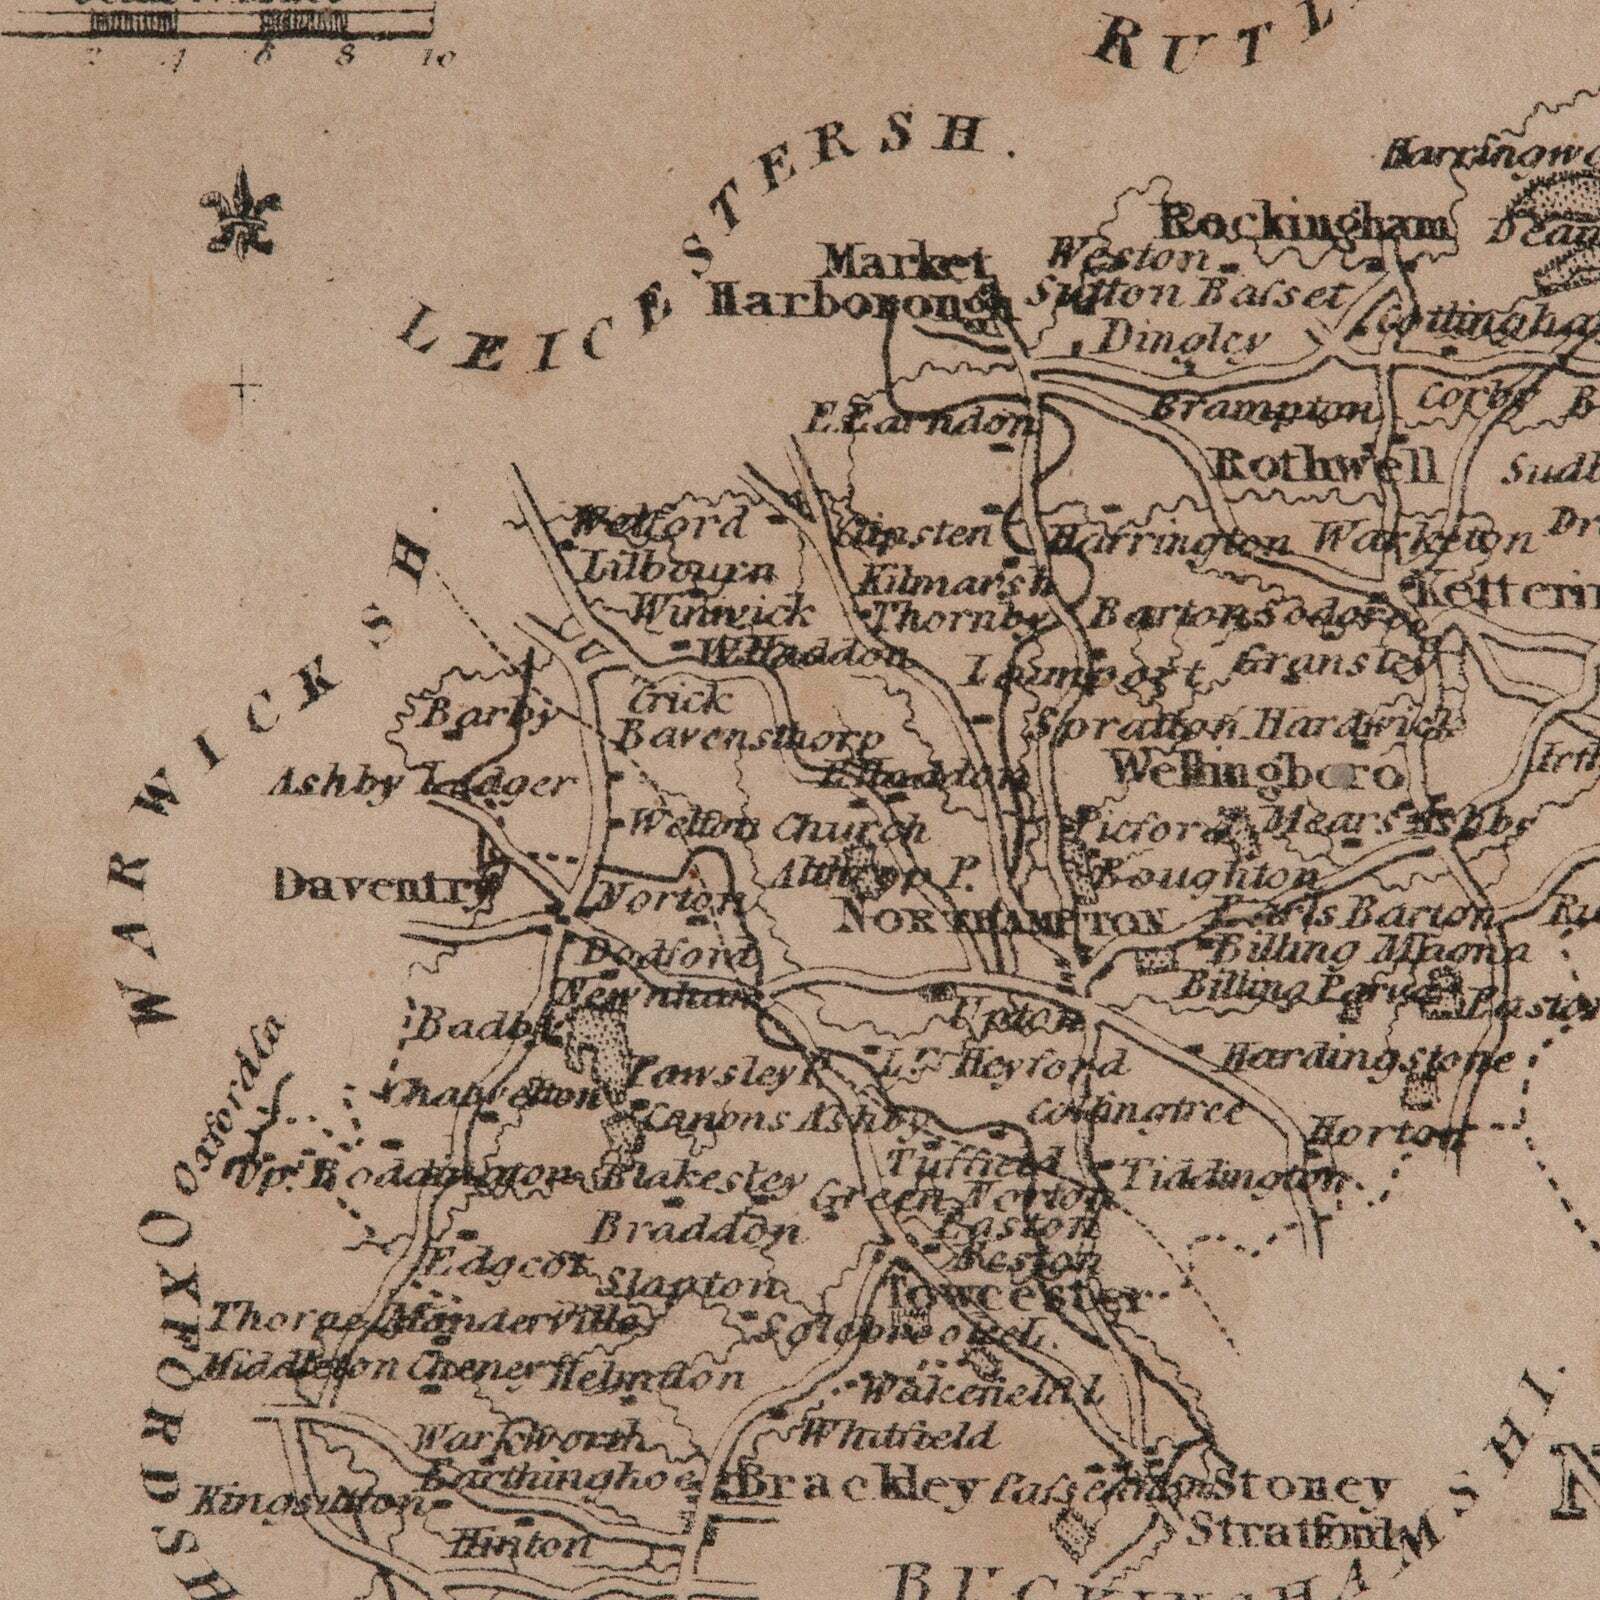 2 4 6 8 10
RUTL
LEICESTERSH.
Rockingham
Market
Harborough
Weston
Sutton Baſset
Dingley
E.Earndon
Brampton
Corby
Rothwell
Welford
Harrington
Warketon
Lilbourn
Kilmarsh
Winwick
Thornby
W.Haddon
Gransley
Barby
Crick
Bavensthorp
Spratton
Hardwick
Wellingboro
Ashby Ledger
E.Haddon
Welton
Church
Picford
Mears Ashby
Daventry
Norton
Althorp P.
Boughton
NORTHAMPTON
Earls Barton
Dodford
Billing Magna
Newnham
Billing Parva
Badby
Upton
L.r Heyford
Hardingstone
Fawsley P.
Canons Ashby
Collingtree
Horton
Up. Boddington
Blakesley
Tuffield
Tiddington
Green Norton
Easton
Neston
Braddon
Edgcot
Slapton
Towcester
Thorpe Manderville
Middleton Cheney
Helmdon
Wakefield L
Warkworth
Whitfield
Farthinghoe
Brackley
Kingsutton
Hinton
Stoney
Stratford
WARWICKSH.
OXFORDSH
BUCKINGHAMSHI.
N